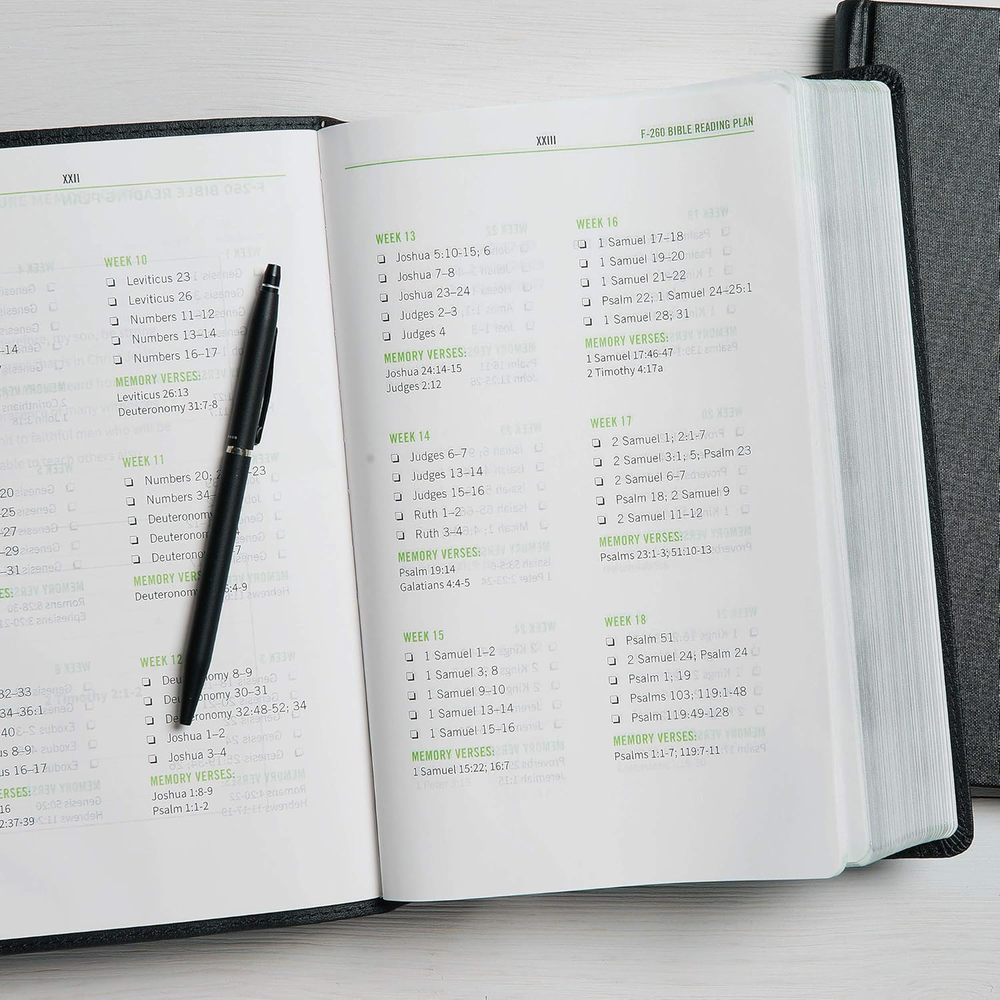 XXII
-14
20
-25
-27
-29
-31
ES:
32-33
34-36:1
40
us 8-9
us 16-17
ERSES:
16
2:37-39
WEEK 10
Leviticus 23
Leviticus 26
Numbers 11-12
Numbers 13-14
Numbers 16-17
MEMORY VERSES:
Leviticus 26:13
Deuteronomy 31:7-8
WEEK 11
Numbers 20; -23
Numbers 34-
Deuteronomy
Deuteronomy
Deuteronomy -7
MEMORY VERSES:
Deuteronomy 6:4-9
WEEK 12
Deuteronomy 8-9
Deuteronomy 30-31
Deuteronomy 32:48-52; 34
Joshua 1-2
Joshua 3-4
MEMORY VERSES:
Joshua 1:8-9
Psalm 1:1-2
XXIII
F-260 BIBLE READING PLAN
WEEK 13
Joshua 5:10-15; 6
Joshua 7-8
Joshua 23-24
Judges 2-3
Judges 4
MEMORY VERSES:
Joshua 24:14-15
Judges 2:12
WEEK 14
Judges 6-7
Judges 13-14
Judges 15-16
Ruth 1-2
Ruth 3-4
MEMORY VERSES:
Psalm 19:14
Galatians 4:4-5
WEEK 15
1 Samuel 1-2
1 Samuel 3; 8
1 Samuel 9-10
1 Samuel 13-14
1 Samuel 15-16
MEMORY VERSES:
1 Samuel 15:22; 16:7
WEEK 16
1 Samuel 17-18
1 Samuel 19-20
1 Samuel 21-22
Psalm 22; 1 Samuel 24-25:1
1 Samuel 28; 31
MEMORY VERSES:
1 Samuel 17:46-47
2 Timothy 4:17a
WEEK 17
2 Samuel 1; 2:1-7
2 Samuel 3:1; 5; Psalm 23
2 Samuel 6-7
Psalm 18; 2 Samuel 9
2 Samuel 11-12
MEMORY VERSES:
Psalms 23:1-3; 51:10-13
WEEK 18
Psalm 51
2 Samuel 24; Psalm 24
Psalm 1; 19
Psalms 103; 119:1-48
Psalm 119:49-128
MEMORY VERSES:
Psalms 1:1-7; 119:7-11